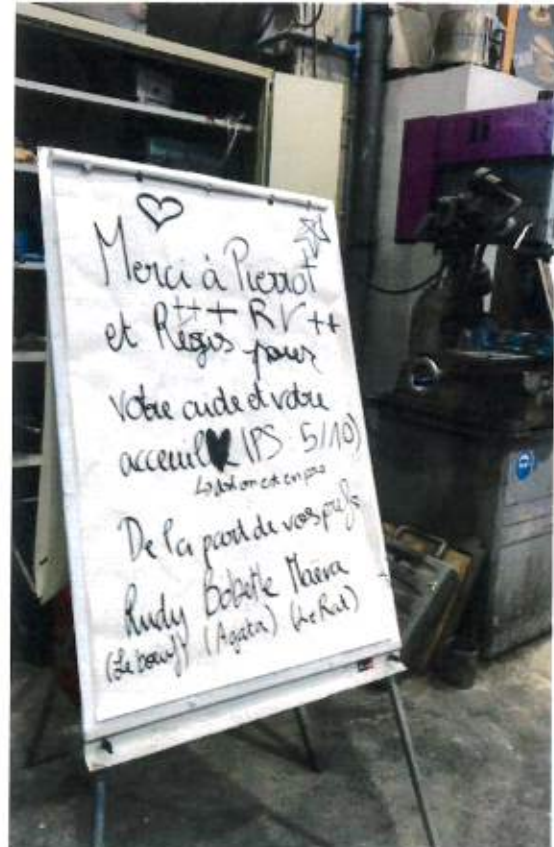 Merci à Pierrot
et Régis +++ RV ++ pour
votre aide et votre
acceuil (PS 5/10)
De la part de vos prefs
Rudy Bobette Maeva
(Le boeuf) (Agata) (Le Rat)